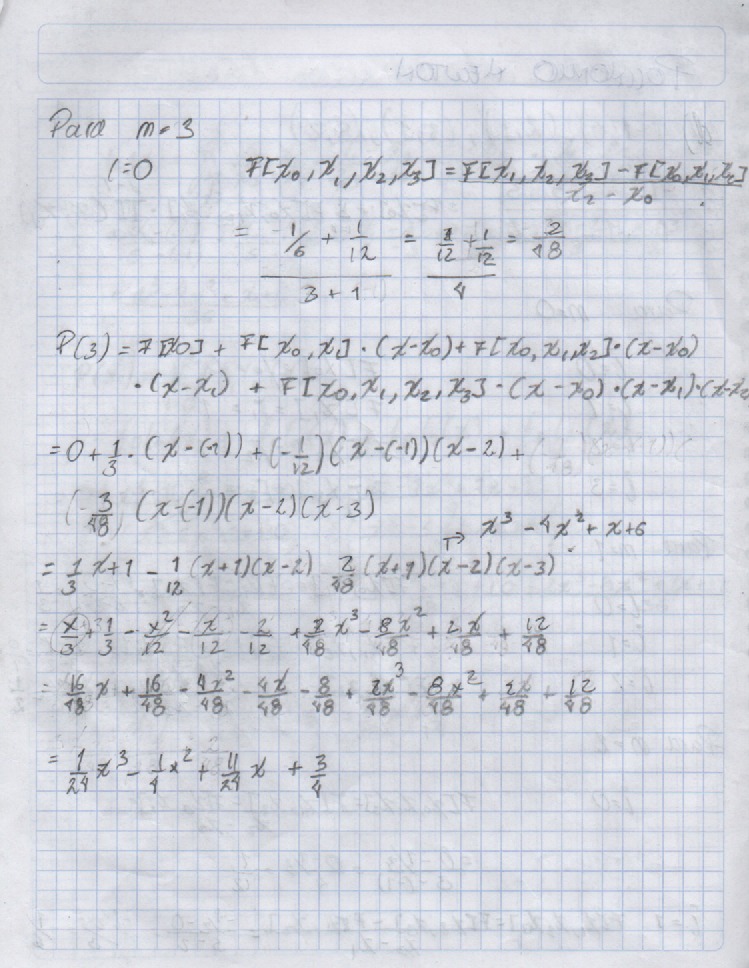 Para m=3
i=0 F[x0, x1, x2, x3] = F[x1, x2, x3] - F[x0, x1, x2] / x2 - x0
= (-1/6 + 1/12) / (3+1) = (/12 + 1/12) / 4 = 2/48
P(3) = F[x0] + F[x0, x1] · (x-x0) + F[x0, x1, x2] · (x-x0)
· (x-x1) + F[x0, x1, x2, x3] · (x-x0) · (x-x1) · (x-x2
= 0 + 1/3 · (x-(-1)) + (-1/12)(x-(-1))(x-2) +
(-3/48) (x-(-1))(x-2)(x-3)
→ x³ - 4x² + x + 6
= 1/3 x+1 - 1/12 (x+1)(x-2) 2/48 (x+1)(x-2)(x-3)
= x/3 + 1/3 - x²/12 - x/12 - 2/12 + 2/48 x³ - 8/48 x² + 2x/48 + 12/48
= 16/48 x + 16/48 - 4x²/48 - 4x/48 - 8/48 + 2x³/48 - 8x²/48 + 2x/48 + 12/48
= 1/24 x³ - 1/4 x² + 11/24 x + 3/4